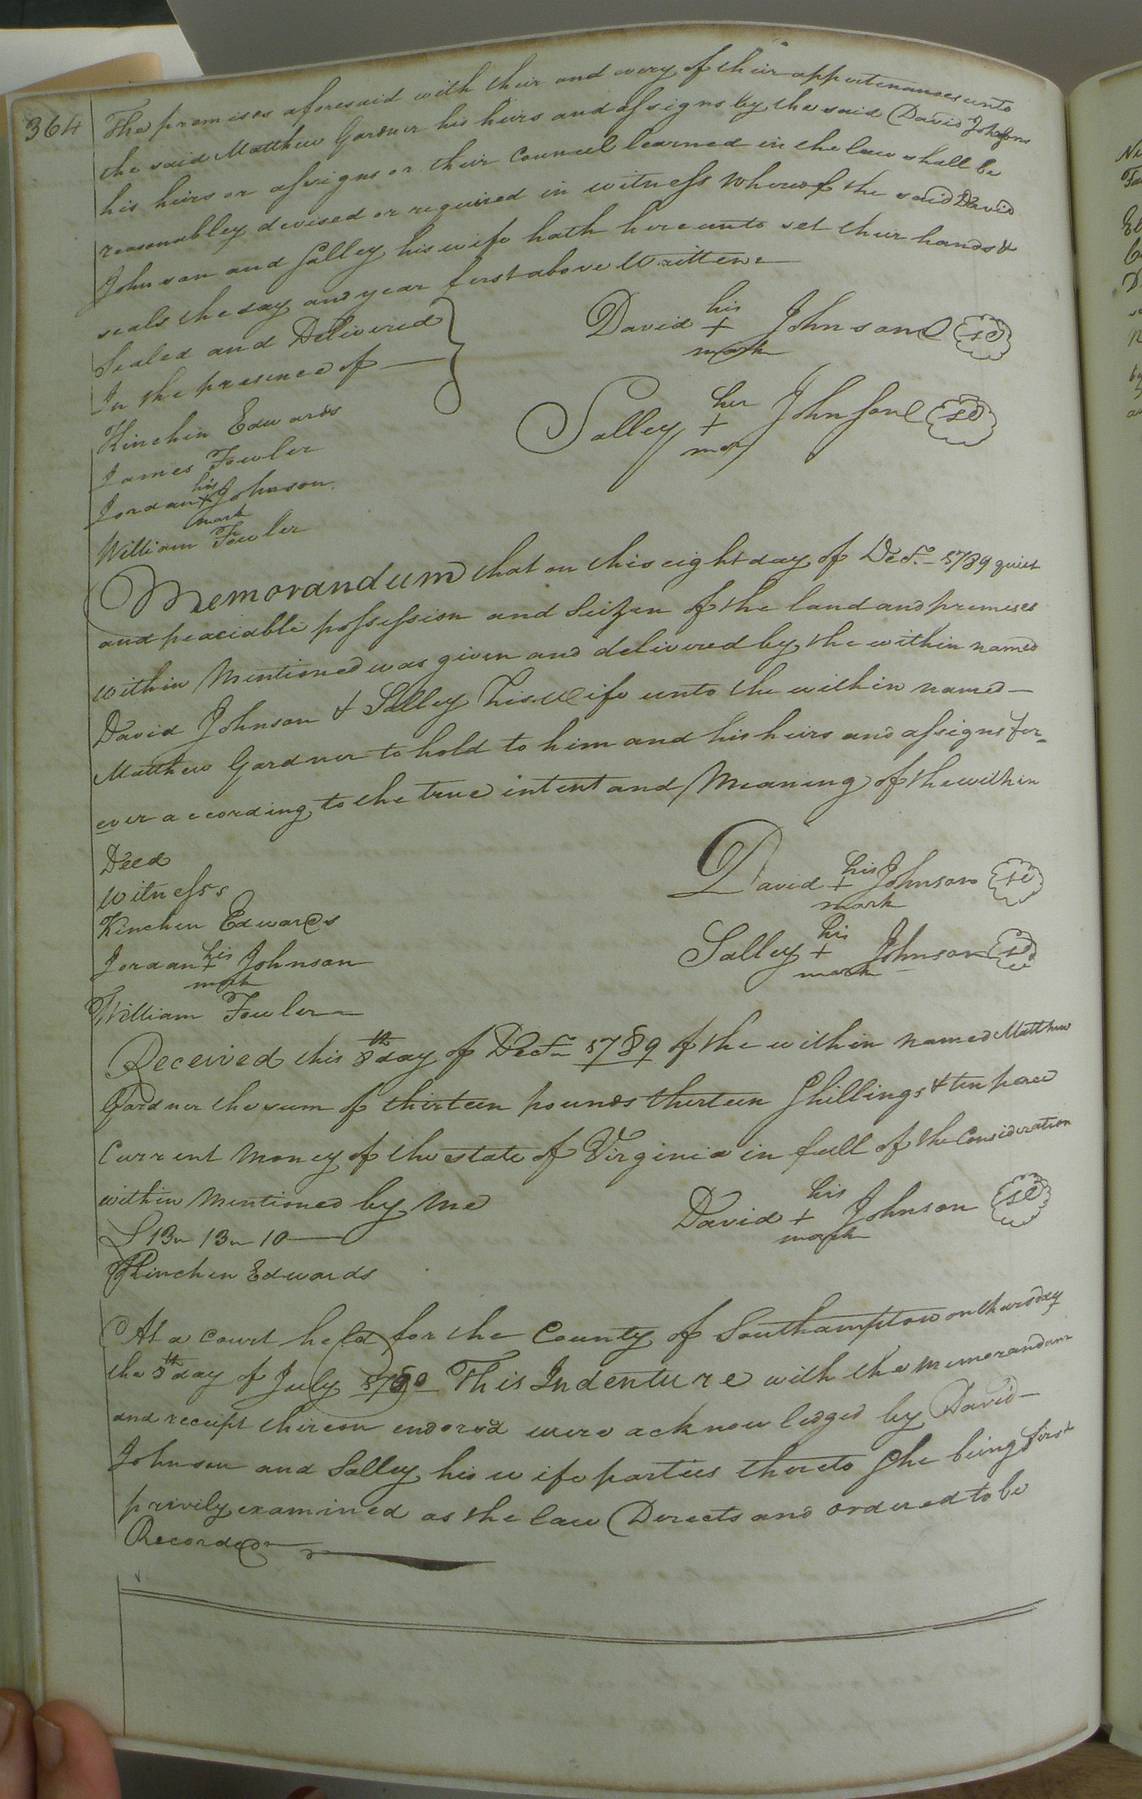 364
The premises aforesaid with their and every of their appertenances unto
the said Matthew Gardner his heirs and assigns by the said David Johnson
his heirs or assigns or their Council learned in the law shall be
reasonabley devised or required in witness whereof the said David
Johnson and Salley his wife hath hereunto set their hands &
seals the day and year first above Written
Sealed and Delivered
In the presence of
David his + mark Johnson Sd
Salley her + mar Johnson Sd
Kinchin Edwards
James Fowler
Jordan his x mark Johnson
William Fowler
Memorandum that on this eight day of Decr. 1789 quiet
and peaciable possession and Seizen of the land and premises
within Mentioned was given and delivered by the within named
David Johnson & Salley his Wife unto the within named
Matthew Gardner to hold to him and his heirs and assigns for-
ever according to the true intent and Meaning of the within
Deed
Witness
David his + mark Johnson Sd
Kinchen Edwards
Salley his + mark Johnson Sd
Jordan his + mark Johnson
William Fowler
Received this 8th day of Decr. 1789 of the within named Matthew
Gardner the sum of thirteen pounds thirteen Shillings & ten pence
Current Money of the state of Virginia in full of the Consideration
within Mentioned by Me
David his + mark Johnson Sd
£ 13 " 13 " 10
Kinchen Edwards
At a Court held for the County of Southampton on thursday
the 8th day of July This Indenture with the Memorandum
and receipt thereon endorsd were acknowledged by David
Johnson and Salley his wife parties thereto She being first
privily examined as the law Derects and ordered to be
Recorded